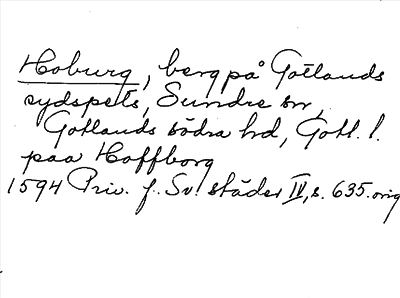 Hoburg, berg på Gotlands
sydspets, Sundre sn,
Gotlands södra hd, Gotl. l.
paa Hoffborg
1594 Priv. f. Sv. städer IV, s. 635. orig